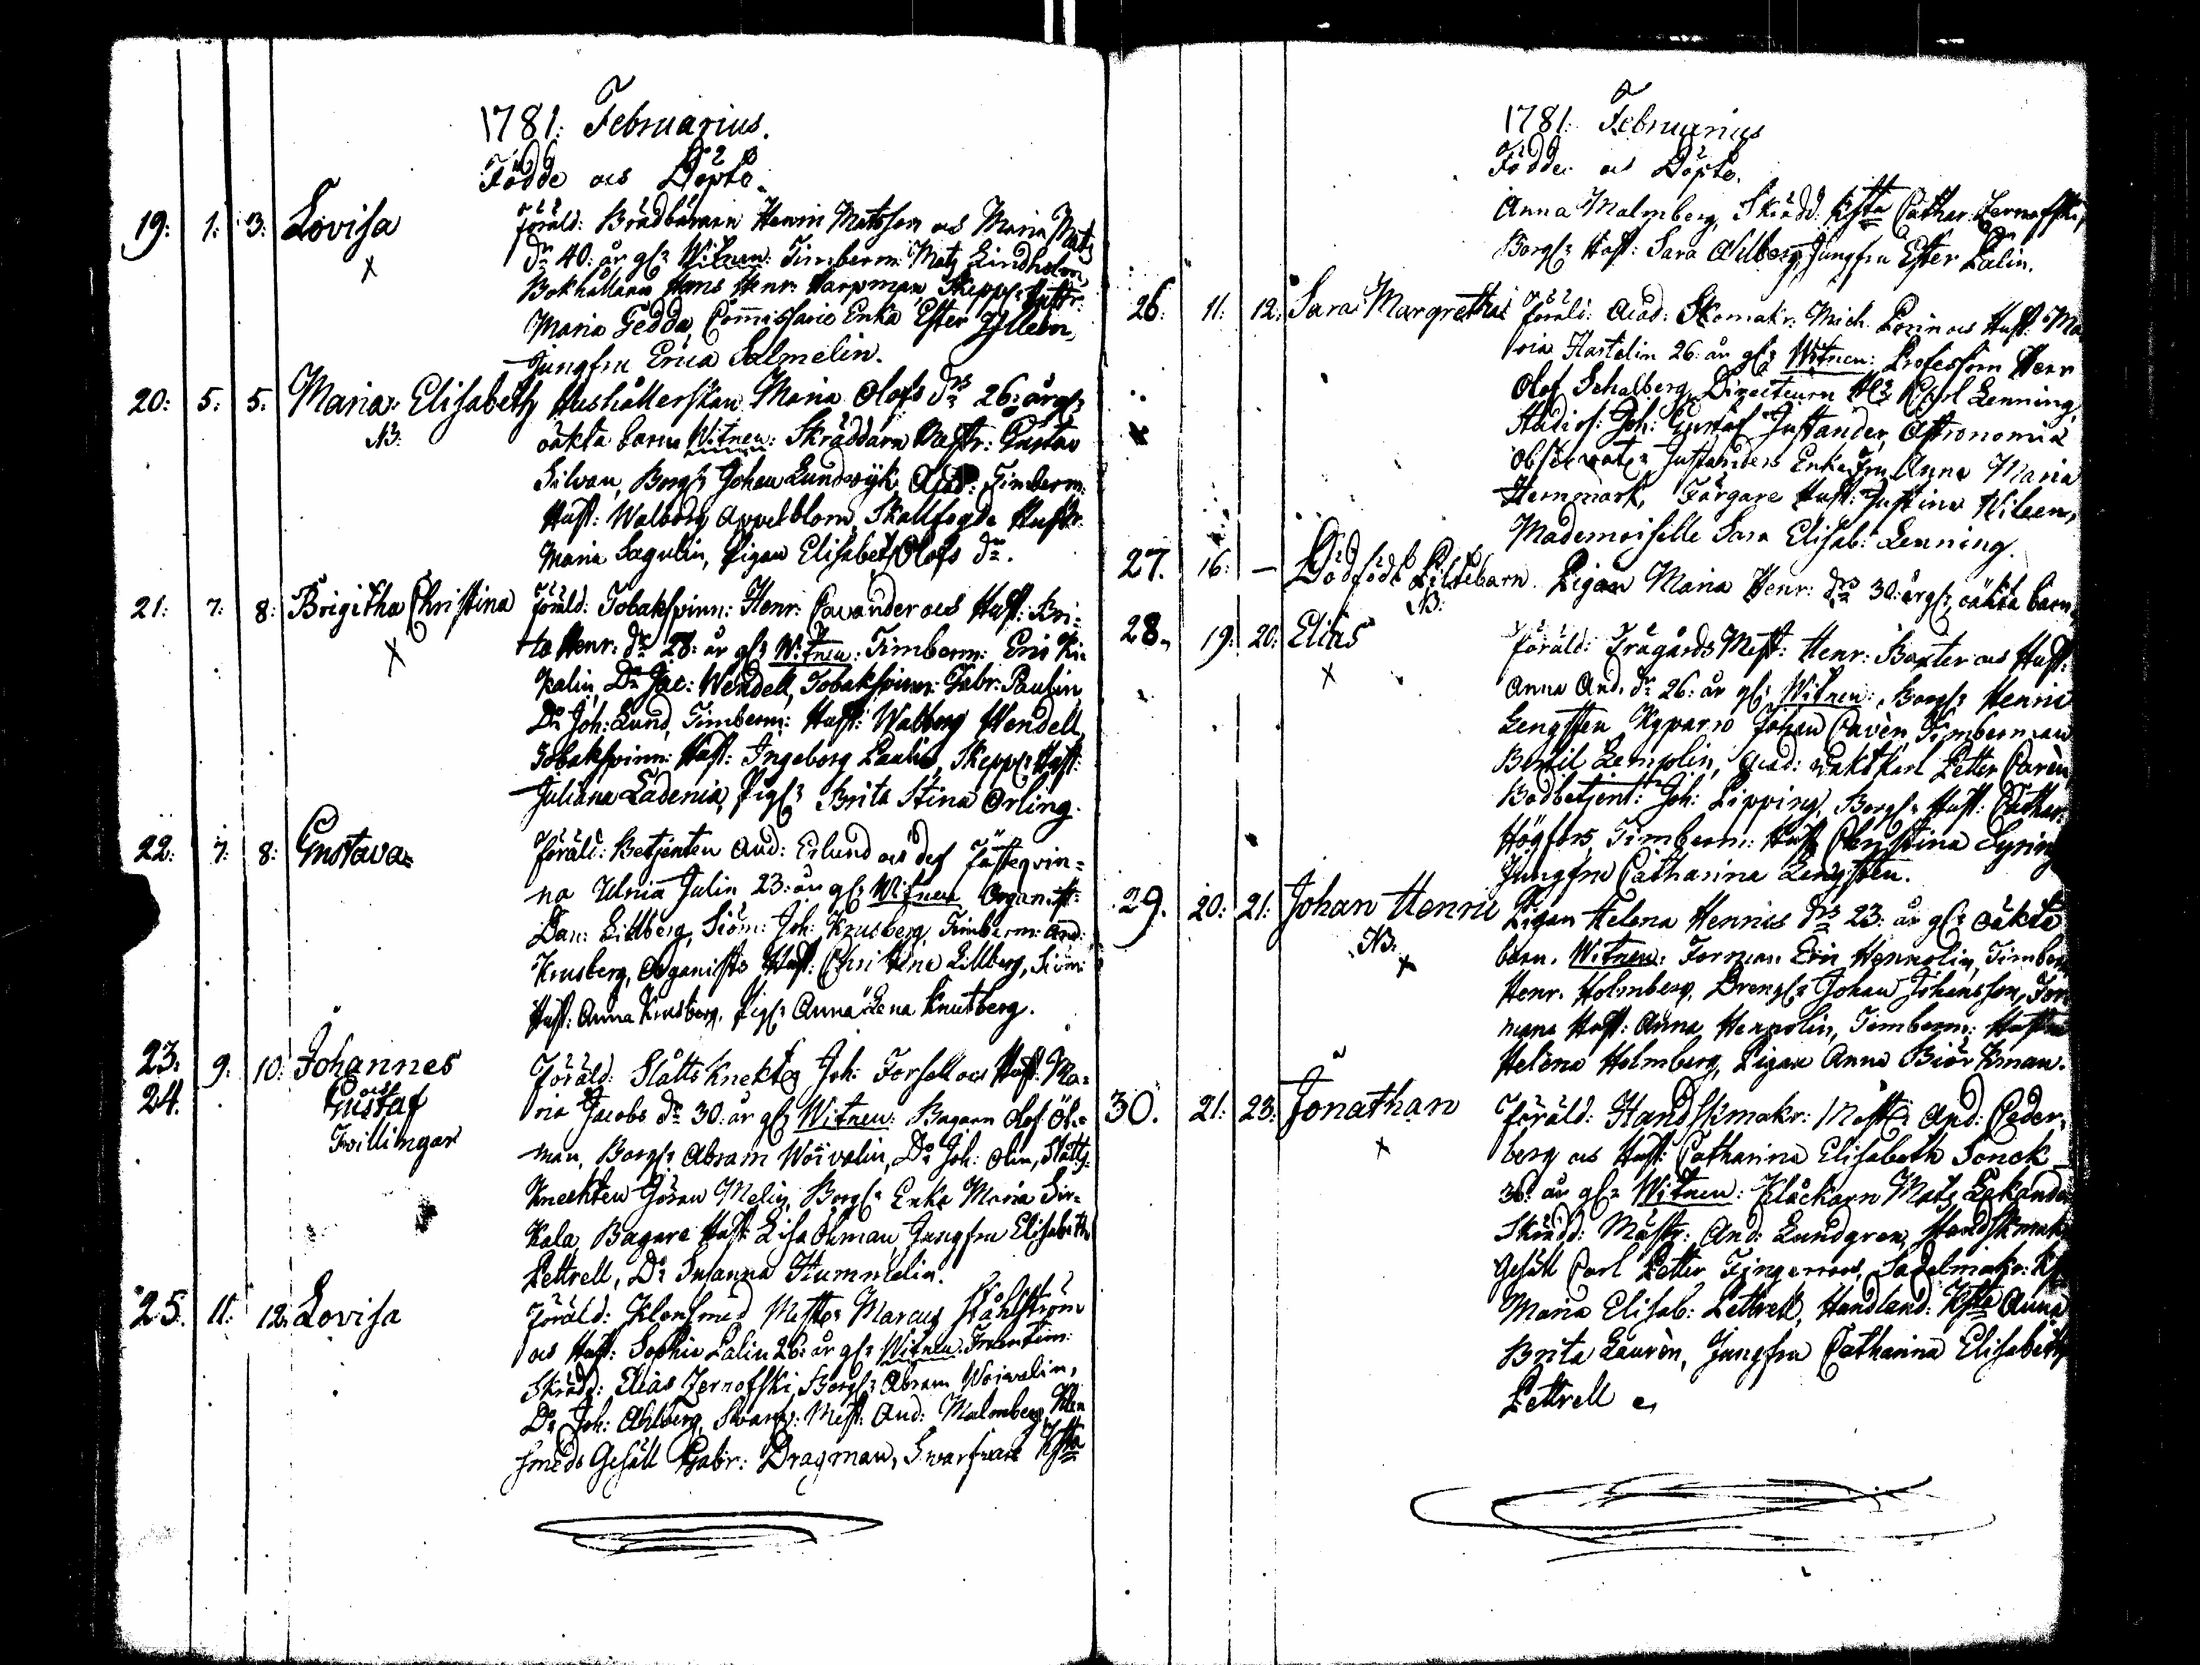 1781: Februarius.
Födde och Döpte.
19: 1: 3: Lovisa Föräld: Brädbäraren Henric Matsson och Maria Mats
X dr 40: år gl: Witnen: Timberm: Matz Lindholm,
Bokhållaren Hans Henr: Harpman, Skepps: Hustr:
Maria Gedda, Commissarie Enka Ester Ylleen,
Jungfru Erica Salmelin.
20: 5: 5: Maria Elisabeth Hushållerskan Maria Olofs dr 26: år gl:
NB: oäkta barn Witnen: Skräddarn Mäst: Gustav
Silvan, Borg: Johan Lundwijk, Acad: Timberm:
Hust: Walborg Appelblom, Skallfogde Hustr:
Maria Sagulin, Pigan Elisabet Olofs dr.
21: 7: 8: Brigitha Christina Föräld: Tobakspinn: Henr: Cavander och Hust: Bri-
X ta Henr: dr 28: år gl: Witnen: Timberm: Eric Ki-
kalin, Do Jac: Wendell, Tobakspinn: Gabr: Paulin,
Do Joh: Lund, Timberm: Hust: Walborg Wendell,
Tobakspinn: Hust: Ingeborg Paulin, Skepps: Hust:
Juliana Ladenia, Pig: Brita Stina Örling.
22: 7: 8: Gustava Föräld: Betjenten And: Erlund och des Fästeqvin-
na Ulrica Julin 23: år gl: Witnen Organist:
Dan: Lillberg, Siöm: Joh: Krusberg, Timberm: And:
Krusberg, Organists Hust: Christina Lillberg, Siöm:
Hust: Anna Krusberg, Pig: Anna Lena Knutberg.
23: 9: 10: Johannes Föräld: Slåtts Knekten Joh: Forsell och Hust: Ma-
24. och Gustaf ria Jacobs dr 30: år gl: Witnen: Bagarn Olof Öh-
Tvillingar man, Borg: Abram Woivalin, Do Joh: Olin, Slåtts-
Knechten Göran Melin, Borg: Enka Maria Sir-
kala, Bagare Hust: Lisa Öhman, Jungfru Elisabeth
Pettrell, Do Susanna Hummelin.
25. 11: 12: Lovisa Föräld: Klensmed Mester Marcus Ståhlström
och Hust: Sophia Palin 26: år gl: Witnen:
Skrädd: Elias Zernofski, Borg: Abram Woivalin,
Do Joh: Ahlberg, Swarfv: Mest: And: Malmberg, Klen
smeds Gesäll Gabr: Dragman, Swarfvare Hsta
1781: Februarius
Födde och Döpte.
Anna Malmberg, Skrädd: Hsta Cathar: Zernofski,
Borg: Hust: Sara Ahlberg, Jungfru Ester Palin.
26: 11: 12: Sara Margretha Föräld: Acad: Skomakr: Mich: Porin och Hust: Ma-
ria Hastelin 26: år gl: Witnen: Professorn Herr
Olof Schalberg, Directeurn Carl Lenning,
Studios: Joh: Gustaf Justander, Astronomiæ
Observat: Justanders Enka Fru Anna Maria
Hernmark, Färgare Hust: Justina Wileen,
Mademoiselle Sara Elisab: Lenning.
27. 16: — Dödfödt Piltebarn. Pigan Maria Henr: dr 30: år gl: oäkta barn
NB:
28. 19: 20: Elias Föräld: Trägårds Mest: Henr: Baxter och Hust:
X Anna And: dr 26: år gl: Witnen: Borg: Henric
Lengsten, Kyparn Johan Cavèn, Timberman
Bertil Lemplin, Acad: vakt Karl Petter Cavèn,
Bodbetjent: Joh: Lipping, Borg: Hust: Cathar:
Högfors, Timberm: Hust: Christina Syring
Jungfru Catharina Lengsten.
29. 20: 21: Johan Henric Pigan Helena Henrics dr 23: år gl: oäkta
NB: X barn. Witnen: Forman Eric Hennolin, Timberm
Henr: Holmberg, Dreng: Johan Johansson, For
mans Hust: Anna Hennolin, Timberm: Hustru
Helena Holmberg, Pigan Anna Biörkman.
30. 21: 23: Jonathan Föräld: Handskmakr: Mäst: And: Ceder-
X berg och Hust: Catharina Elisabeth Sonck
30: år gl: Witnen: Klåckarn Matz Lakander
Skrädd: Mästr: And: Lundgren, Handskmak
Gesäll Carl Petter Fingerroos, Sadelmakr: H
Maria Elisab: Pettrell, Handland: Hsta Anna
Brita Laurèn, Jungfru Catharina Elisabeth
Pettrell